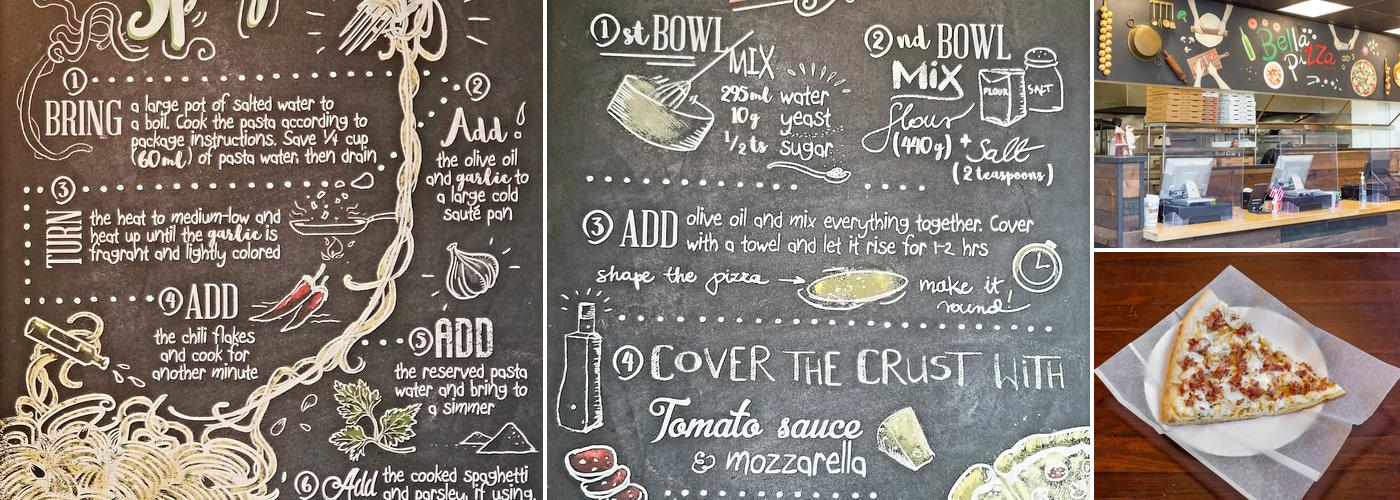 Sp
1
BRING
a large pot of salted water to
a boil. Cook the pasta according to
package instructions. Save 1/4 cup
(60 ml) of pasta water, then drain
2
Add
the olive oil
and garlic to
a large cold
sauté pan
3
TURN
the heat to medium-low and
heat up until the garlic is
fragrant and lightly colored
4 ADD
the chili flakes
and cook for
another minute
5 ADD
the reserved pasta
water and bring to
a simmer
6 Add the cooked spaghetti
and parsley, if using,
1st BOWL
MIX
295 ml water
10 g yeast
1/2 ts sugar
2nd BOWL
MIX
flour
(440 g) + Salt
(2 teaspoons)
FLOUR
SALT
3 ADD olive oil and mix everything together. Cover
with a towel and let it rise for 1-2 hrs
shape the pizza → make it
round!
4 COVER THE CRUST WITH
Tomato sauce
& mozzarella
Bella
Pizza